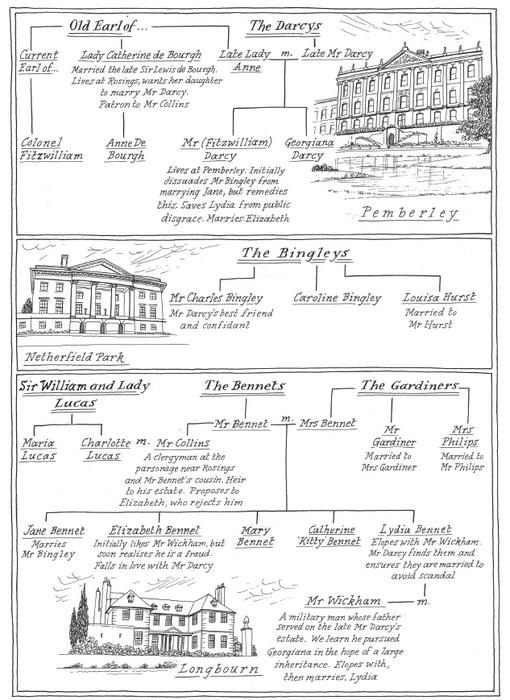 Old Earl of...
The Darcys
Current
Earl of...
Lady Catherine de Bourgh
Married the late Sir Lewis de Bourgh.
Lives at Rosings, wants her daughter
to marry Mr Darcy.
Patron to Mr Collins
Late Lady
Anne
m.
Late Mr Darcy
Colonel
Fitzwilliam
Anne De
Bourgh
Mr (Fitzwilliam)
Darcy
Lives at Pemberley. Initially
dissuades Mr Bingley from
marrying Jane, but remedies
this. Saves Lydia from public
disgrace. Marries Elizabeth
Georgiana
Darcy
Pemberley
The Bingleys
Mr Charles Bingley
Mr Darcy's best friend
and confidant
Caroline Bingley
Louisa Hurst
Married to
Mr Hurst
Netherfield Park
Sir William and Lady
Lucas
The Bennets
The Gardiners
Mr Bennet
m.
Mrs Bennet
Mr
Gardiner
Married to
Mrs Gardiner
Mrs
Philips
Married to
Mr Philips
Maria
Lucas
Charlotte
Lucas
m.
Mr Collins
A clergyman at the
parsonage near Rosings
and Mr Bennet's cousin. Heir
to his estate. Proposes to
Elizabeth, who rejects him
Jane Bennet
Marries
Mr Bingley
Elizabeth Bennet
Initially likes Mr Wickham, but
soon realises he is a fraud.
Falls in love with Mr Darcy
Mary
Bennet
Catherine
'Kitty' Bennet
Lydia Bennet
Elopes with Mr Wickham.
Mr Darcy finds them and
ensures they are married to
avoid scandal
Mr Wickham
m.
A military man whose father
served on the late Mr Darcy's
estate. We learn he pursued
Georgiana in the hope of a large
inheritance. Elopes with,
then marries, Lydia
Longbourn